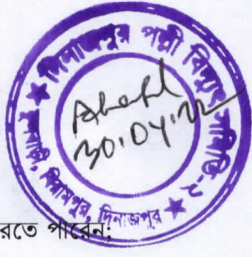 ★ দিনাজপুর পল্লী বিদ্যুৎ সমিতি-২ ★
বিরামপুর, দিনাজপুর
30.04.22
রতে পারেন;